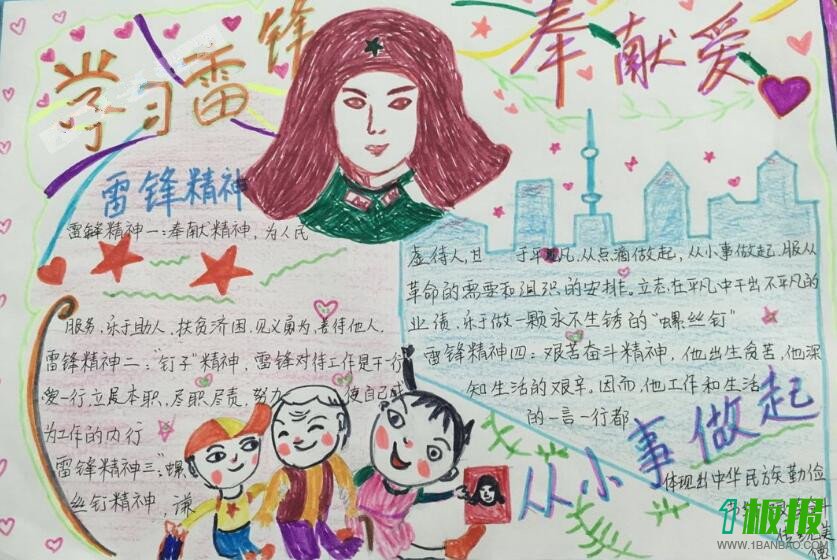 学习雷锋
奉献爱
雷锋精神
雷锋精神一:奉献精神,为人民
服务,乐于助人,扶贫济困,见义勇为,善待他人,
雷锋精神二:"钉子"精神,雷锋对待工作是干一行
爱一行,立足本职、尽职、尽责,努力 使自己成
为工作的内行
雷锋精神三:"螺
丝钉精神,谦
虚待人,甘 于平凡,从点滴做起,从小事做起,服从
革命的需要和组织的安排。立志在平凡中干出不平凡的
业绩,乐于做一颗永不生锈的"螺丝钉"
雷锋精神四:艰苦奋斗精神,他出生贫苦,他深
知生活的艰辛。因而,他工作和生活
的一言一行都
体现出中华民族勤俭
从小事做起
1板报
WWW.1BANBAO.COM